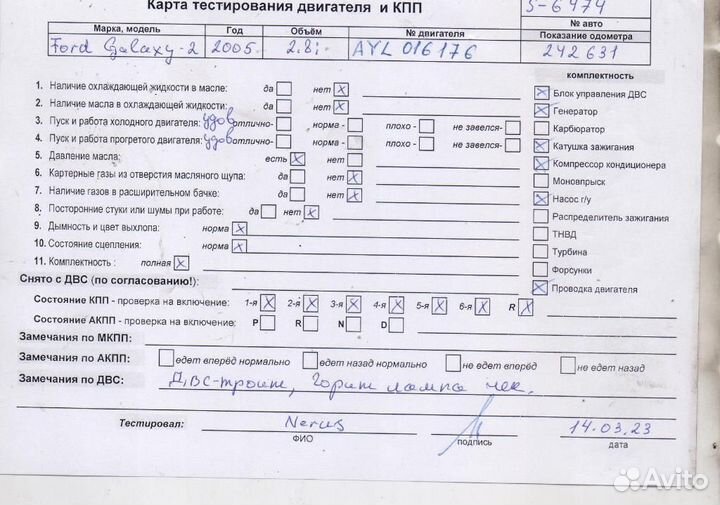 Карта тестирования двигателя и КПП
S-6474
№ авто
Марка, модель Год Объём № двигателя Показание одометра
Ford Galaxy-2 2005. 2.8i- AYL 016176 242 631
комплектность
1. Наличие охлаждающей жидкости в масле: да нет X
X Блок управления ДВС
2. Наличие масла в охлаждающей жидкости: да нет X
X Генератор
3. Пуск и работа холодного двигателя: удов отлично- норма - плохо - не завелся-
Карбюратор
4. Пуск и работа прогретого двигателя: удов отлично- норма - плохо - не завелся-
X Катушка зажигания
5. Давление масла: есть X нет
X Компрессор кондиционера
6. Картерные газы из отверстия масляного щупа: да нет X
Моновпрыск
7. Наличие газов в расширительном бачке: да нет X
X Насос г/у
8. Посторонние стуки или шумы при работе: да нет X
Распределитель зажигания
9. Дымность и цвет выхлопа: норма X
ТНВД
10. Состояние сцепления: норма X
Турбина
11. Комплектность : полная X
Форсунки
Снято с ДВС (по согласованию!):
X Проводка двигателя
Состояние КПП - проверка на включение: 1-я X 2-я X 3-я X 4-я X 5-я X 6-я X R X
Состояние АКПП - проверка на включение: P R N D
Замечания по МКПП:
Замечания по АКПП: едет вперёд нормально едет назад нормально не едет вперёд не едет назад
Замечания по ДВС: ДВС-троит, горит лампа чек.
Тестировал: Nerus 14.03.23
ФИО подпись дата
Avito